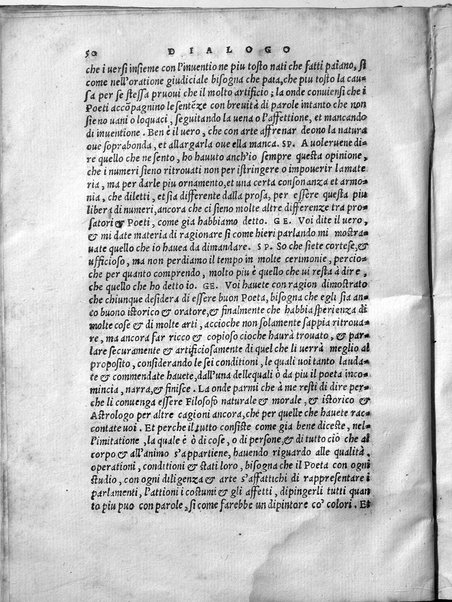 50 DIALOGO
che i uersi insieme con l'inuentione piu tosto nati che fatti paiano, si
come nell'oratione giudiciale bisogna che paia, che piu tosto la cau-
sa per se stessa pruoui che il molto artificio; la onde conuiensi che i
Poeti accōpagnino le sentēze con breuità di parole intanto che non
sieno uani o loquaci, seguitando la uena o l'affettione, et mancando
di inuentione. Ben è il uero, che con arte affrenar deono la natura
oue soprabonda, et allargarla oue ella manca. SP. A uoleruene di-
re quello che ne sento, ho hauuto anch'io sempre questa opinione,
che i numeri sieno ritrouati non per istringere o impouerir la mate
ria, ma per darle piu ornamento, et una certa consonanza et armo-
nia, che diletti, et sia differente dalla prosa, per essere questa piu
libera di numeri, ancora che ci sieno molte altre differenze tra pro-
satori & Poeti, come già habbiamo detto. GE. Voi dite il uero,
& mi date materia di ragionare sì come hieri parlando mi mostra-
uate quello che io hauea da dimandare. SP. So che siete cortese, &
ufficioso, ma non perdiamo il tempo in molte cerimonie, percio-
che per quanto comprendo, molto piu è quello che ui resta à dire,
che quello che ho detto io. GE. Voi hauete con ragion dimostrato
che chiunque desidera di essere buon Poeta, bisogna che egli sia an-
co buono istorico & oratore, & finalmente che habbia sperienza di
molte cose & di molte arti, accioche non solamente sappia ritroua-
re, ma ancora far ricco & copioso cioche haurà trouato, & par-
lare securamente & artificiosamente di quel che li uerrà meglio al
proposito, considerando le sei conditioni, le quali uoi tanto lauda-
te & commendate hauete, dall'una dellequali ò da piu il poeta incomincia,
narra, & finisce. La onde parmi che à me resti di dire per-
che li conuenga essere Filosofo naturale & morale, & istorico &
Astrologo per altre cagioni ancora, che per quelle che hauete rac-
contate uoi. Et perche il tutto consiste come gia bene diceste, nel-
l'imitatione, la quale è ò di cose, o di persone, & di tutto ciò che al
corpo & all'animo s'appartiene, hauendo riguardo alle qualità,
operationi, conditioni & stati loro, bisogna che il Poeta con ogni
studio, con ogni diligenza & arte s'affatichi di rappresentare i
parlamenti, l'attioni i costumi & gli affetti, dipingerli tutti quan
to piu puo con parole, si come farebbe un dipintore co' colori. Et